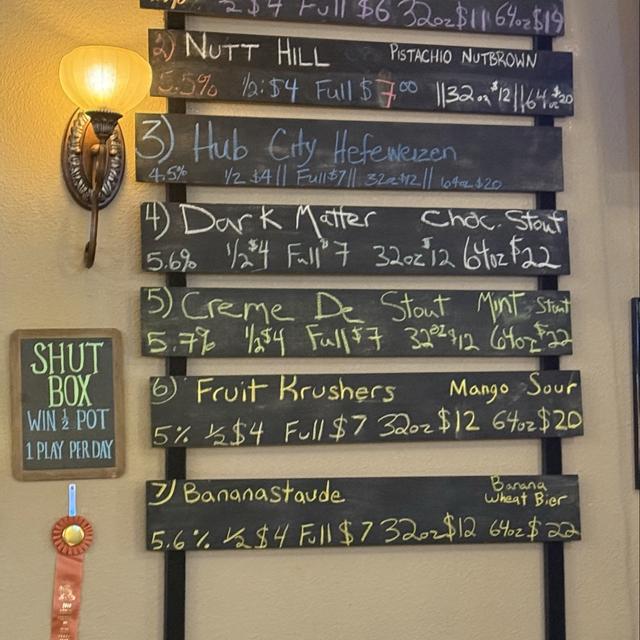 2 $4 Full $6 32oz $11 64oz $19
2) NUTT HILL PISTACHIO NUTBROWN
5.5% 1/2: $4 Full $7.00 ||32oz $12||64oz $20
3) Hub City Hefeweizen
4.5% 1/2 $4|| Full $7|| 32oz $12|| 64oz $20
4) Dark Matter Choc. Stout
5.6% 1/2 $4 Full $7 32oz $12 64oz $22
5) Creme De Stout Mint Stout
5.7% 1/2 $4 Full $7 32oz $12 64oz $22
6) Fruit Krushers Mango Sour
5% 1/2 $4 Full $7 32oz $12 64oz $20
7) Bananastaude Banana
Wheat Bier
5.6% 1/2 $4 Full $7 32oz $12 64oz $22
SHUT
BOX
WIN 1/2 POT
1 PLAY PER DAY